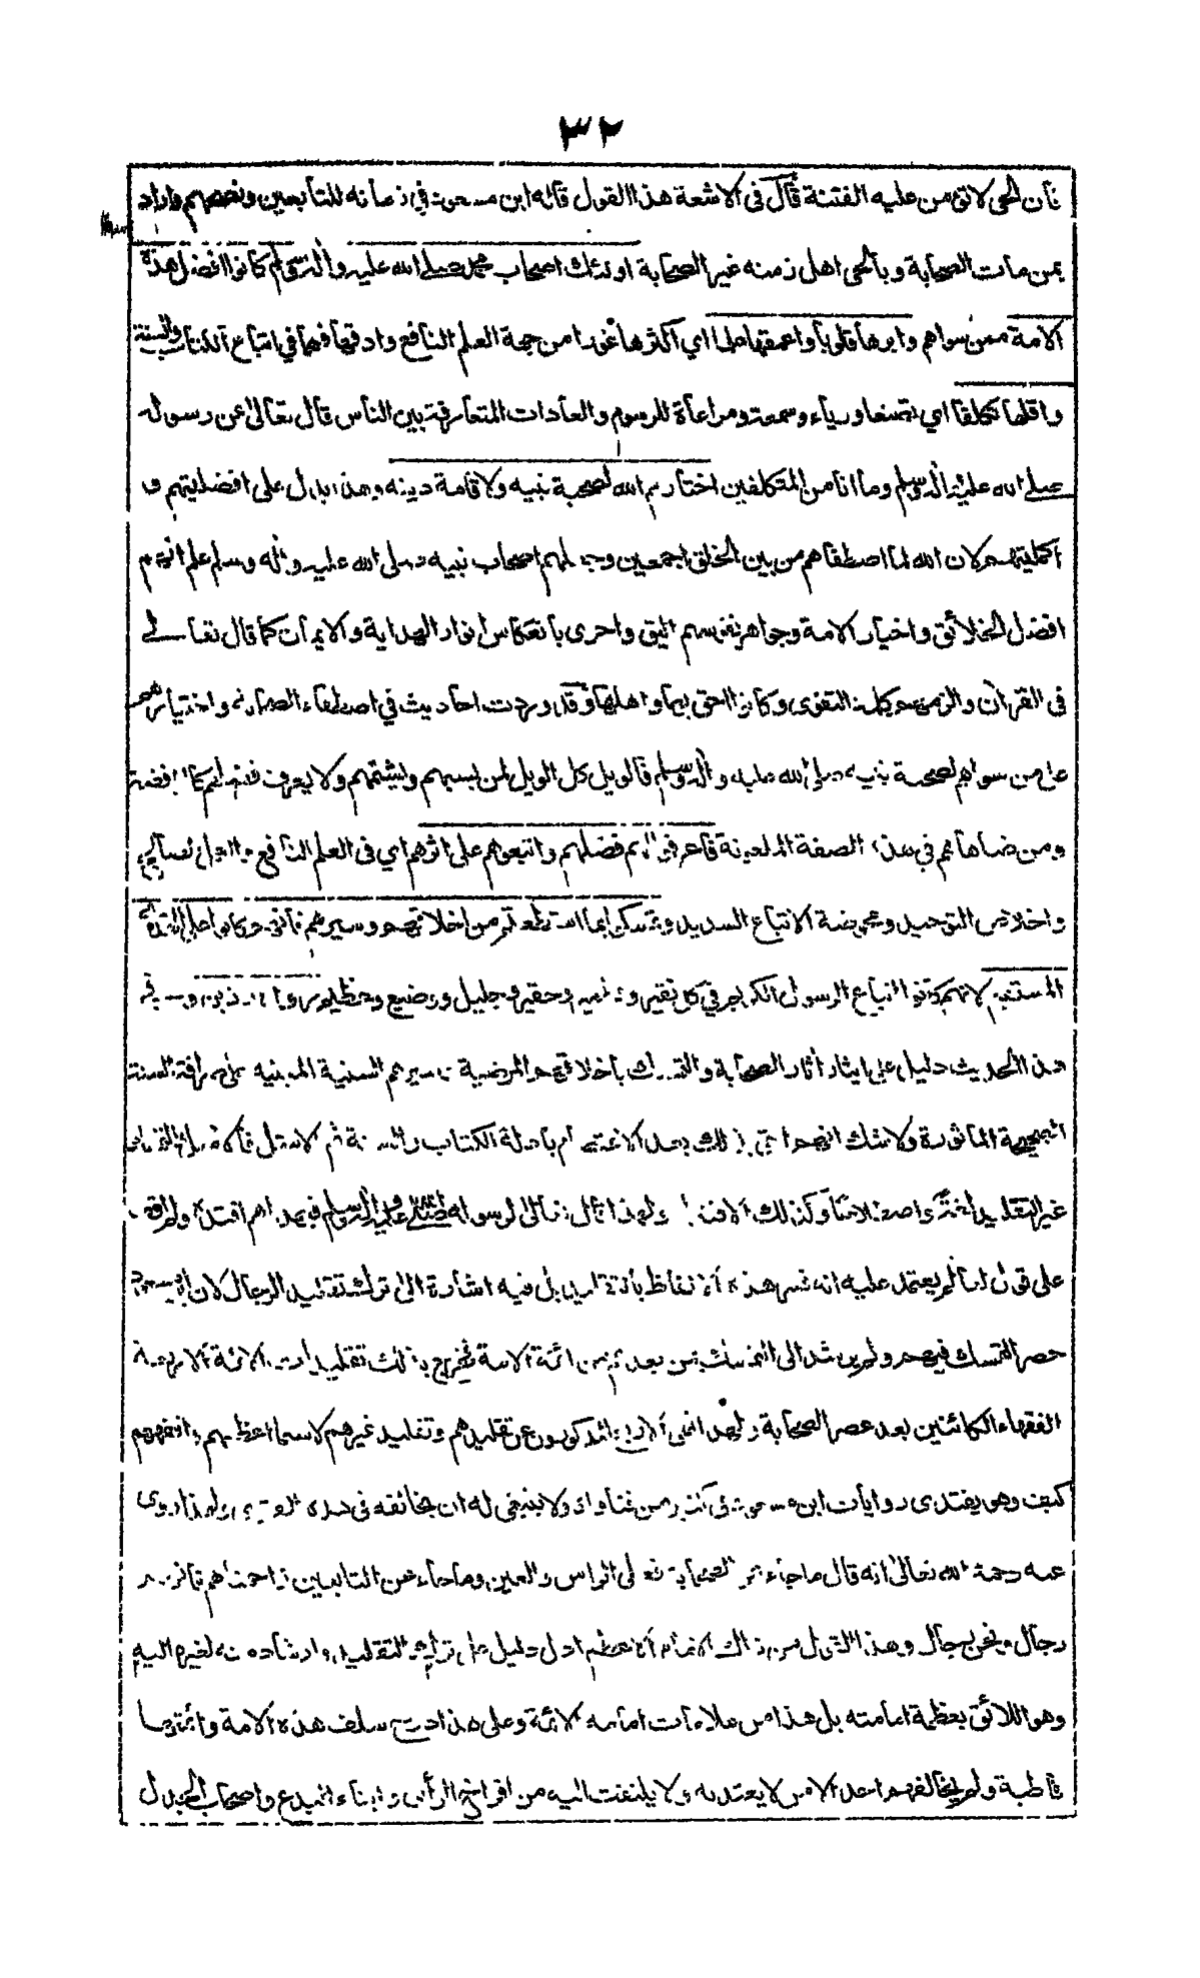 ٣٢
فأن الحي لا تؤمن عليه الفتنة قال في الاشعة هذا القول قاله ابن مسعود في زمانه للتابعين ونصحهم واراد
بمن مات الصحابة وبالحي اهل زمنه غير الصحابة اولئك اصحاب محمد صلى الله عليه واله وسلم كانوا افضل هذة
الامة ممن سواهم وابرها قلوبا واعمقها علما اي اكثرها غورا من جهة العلم النافع وادقها فهما في اتباع الكتاب والسنة
واقلها تكلفا اي تصنعا ورياء وسمعة ومراعاة للرسوم والعادات المتعارفة بين الناس قال تعالى عن رسوله
صلى الله عليه واله وسلم وما انا من المتكلفين اختارهم الله لصحبة نبيه ولاقامة دينه وهذا يدل على افضليتهم و
اكمليتهم لان الله لما اصطفاهم من بين الخلق اجمعين وجعلهم اصحاب نبيه صلى الله عليه واله وسلم علم انهم
افضل الخلائق واخيار الامة وجواهر نفوسهم اليق واحرى بانعكاس انوار الهداية والايمان كما قال تعالى
في القران والزمهم كلمة التقوى وكانوا احق بها واهلها وقد وردت احاديث في اصطفاء الصحابة واختيارهم
على من سواهم لصحبة نبيه صلى الله عليه واله وسلم فالويل كل الويل لمن يسبهم ويشتمهم ولا يعرف فضلهم كالرافضة
ومن ضاهاهم في هذه الصفة الملعونة فاعرفوا لهم فضلهم واتبعوهم على اثرهم اي في العلم النافع والعمل الصالح
واخلاص التوحيد ومحوضة الاتباع السديد وتمسكوا بما استطعتم من اخلاقهم وسيرهم فانهم كانوا على الهدى
المستقيم لانهم كانوا اتباع الرسول الكريم في كل نقير و حقير وجليل ووضيع وعظيم رواه رزين وفي
هذا الحديث دليل على ايثار اثار الصحابة والتمسك باخلاقهم المرضية وسيرهم السنية المبنية على صرافة السنة
الصحيحة الماثورة ولا شك انهم احق بذلك بعد الاعتصام بادلة الكتاب والسنة ثم الامثل فالامثل
غير التقليد لغة واصطلاحا وكذلك الاقتداء ولهذا قال تعالى لرسوله صلى الله عليه واله وسلم فبهداهم اقتده
على قول امام يعتمد عليه انه فسر هذه الالفاظ بالتقليد بل فيه اشارة الى ترك تقليد الرجال لان ابن مسعود
حصر التمسك فيهم ولم يرشد الى التمسك بمن بعدهم من ائمة الامة فخرج بذلك تقليد الائمة الاربعة
الفقهاء الكائنين بعد عصر الصحابة ولهذا نهى المذكورون عن تقليدهم وتقليد غيرهم لاسيما اعظمهم وافقههم
كيف وهو يقتدى روايات ابن مسعود في كثير من فتاواه ولا ينبغي له ان يخالفه في هذه ولهذا روى
عنه رحمة الله تعالى انه قال ما جاء عن الصحابة فعلى الراس والعين وما جاء عن التابعين فهم
رجال ونحن رجال وهذا القول من ذلك الامام الاعظم ادل دليل على ترك التقليد وارشاده لغيره اليه
وهو اللائق بعظمة امامته بل هذا من علامات امامه الائمة وعلى هذا درج سلف هذه الامة وائمتها
قاطبة ولم يخالفهم احد الا من لا يعتد به ولا يلتفت اليه من افراخ الرأى وابناء البدع واصحاب الجدل